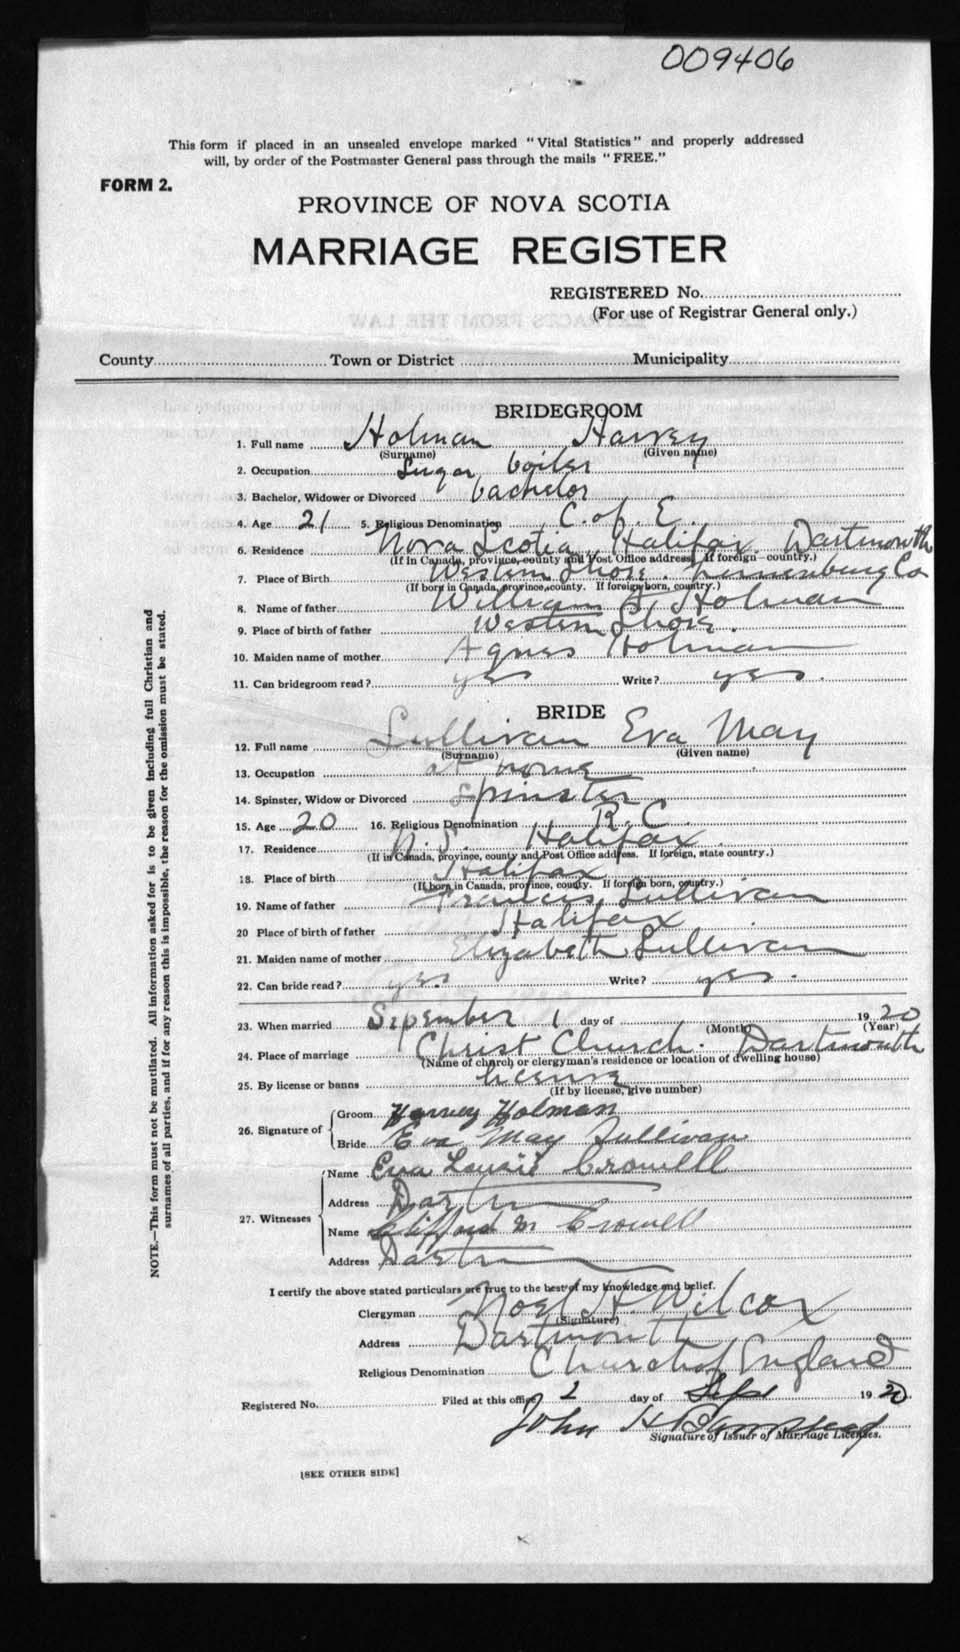 009406
This form if placed in an unsealed envelope marked "Vital Statistics" and properly addressed
will, by order of the Postmaster General pass through the mails "FREE."
FORM 2.
PROVINCE OF NOVA SCOTIA
MARRIAGE REGISTER
REGISTERED No.
(For use of Registrar General only.)
County Town or District Municipality
BRIDEGROOM
1. Full name Holman Harvey
(Surname) (Given name)
2. Occupation Sugar boiler
3. Bachelor, Widower or Divorced bachelor
4. Age 21 5. Religious Denomination C. of E.
6. Residence Nova Scotia Halifax Dartmouth
(If in Canada, province, county and Post Office address. If foreign—country.)
7. Place of Birth Western Shore. Lunenburg Co
(If born in Canada, province, county. If foreign born, country.)
8. Name of father William Holman
9. Place of birth of father Western Shore.
10. Maiden name of mother Agnes Holman
11. Can bridegroom read? yes Write? yes.
BRIDE
12. Full name Sullivan Eva May
(Surname) (Given name)
13. Occupation at home
14. Spinster, Widow or Divorced Spinster
15. Age 20 16. Religious Denomination R. C.
17. Residence N. S. Halifax
(If in Canada, province, county and Post Office address. If foreign, state country.)
18. Place of birth Halifax
(If born in Canada, province, county. If foreign born, country.)
19. Name of father Francis Sullivan
20 Place of birth of father Halifax
21. Maiden name of mother Elizabeth Sullivan
22. Can bride read? yes. Write? yes.
23. When married Sepember 1 day of 1920
(Month) (Year)
24. Place of marriage Christ Church. Dartmouth
(Name of church or clergyman's residence or location of dwelling house)
25. By license or banns license
(If by license, give number)
26. Signature of Groom Harvey Holman
Bride Eva May Sullivan
27. Witnesses Name Eva Crowell
Address Dartm
Name Clifford M Crowell
Address Dartm
I certify the above stated particulars are true to the best of my knowledge and belief.
Clergyman Noel H. Wilcox
(Signature)
Address Dartmouth
Religious Denomination Church of England
Registered No. Filed at this office 2 day of Sept 1920
John H
Signature of Issuer of Marriage Licenses.
[SEE OTHER SIDE]
NOTE.—This form must not be mutilated. All information asked for is to be given including full Christian and
surnames of all parties, and if for any reason this is impossible, the reason for the omission must be stated.